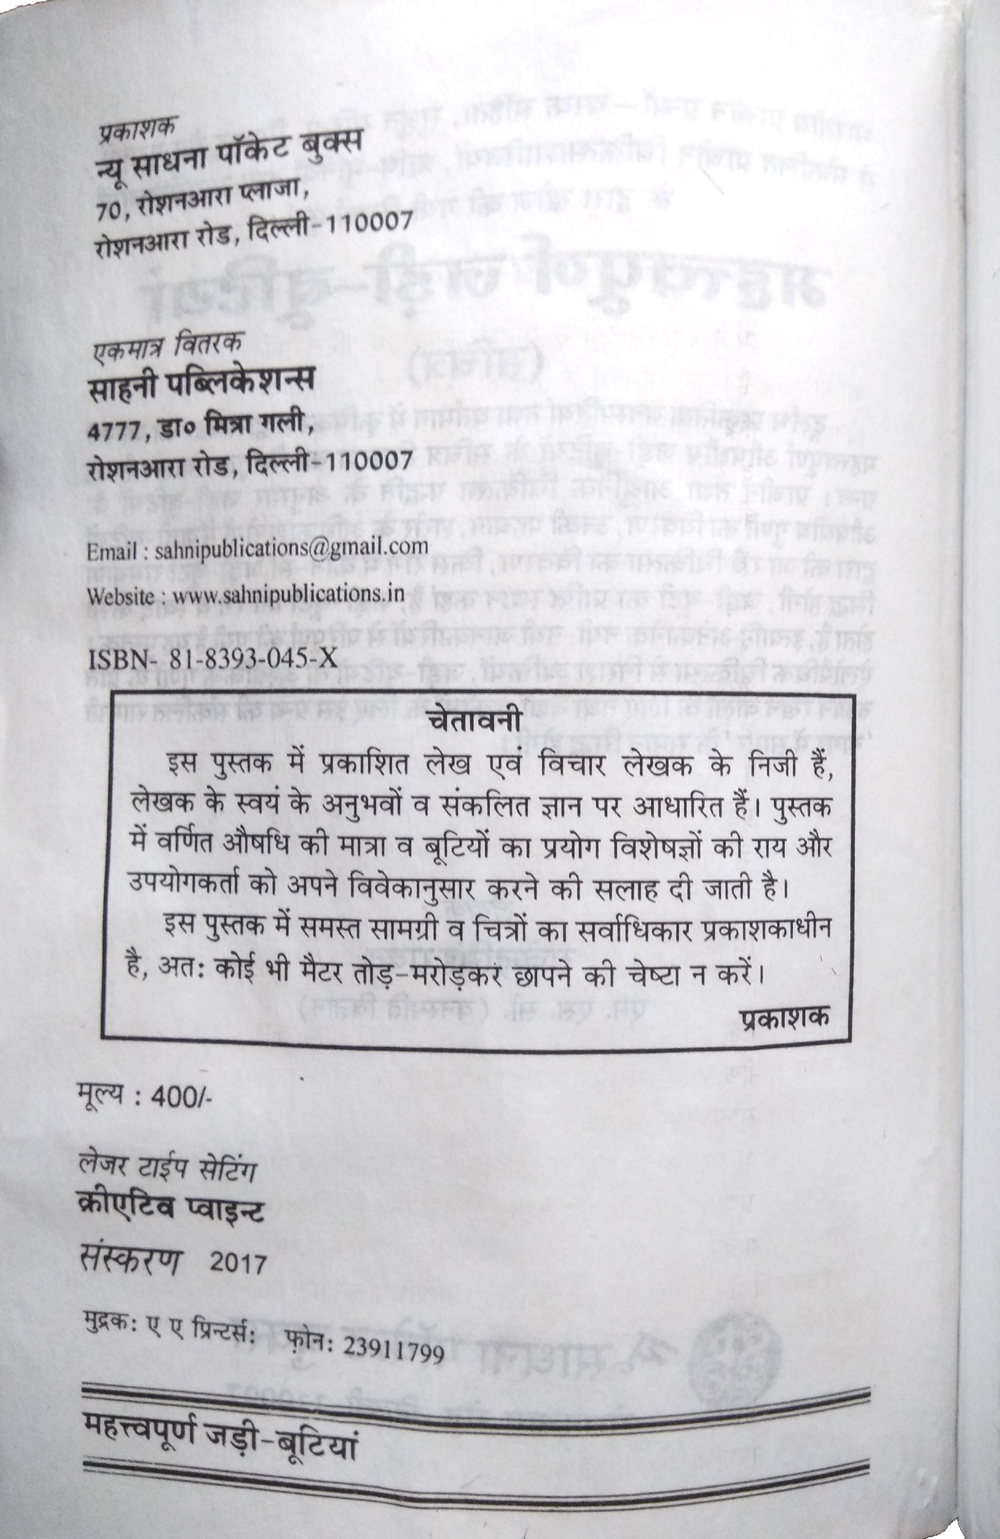 प्रकाशक
न्यू साधना पॉकेट बुक्स
70, रोशनआरा प्लाजा,
रोशनआरा रोड, दिल्ली-110007
एकमात्र वितरक
साहनी पब्लिकेशन्स
4777, डा० मित्रा गली,
रोशनआरा रोड, दिल्ली-110007
Email : sahnipublications@gmail.com
Website : www.sahnipublications.in
ISBN- 81-8393-045-X
चेतावनी
इस पुस्तक में प्रकाशित लेख एवं विचार लेखक के निजी हैं,
लेखक के स्वयं के अनुभवों व संकलित ज्ञान पर आधारित हैं। पुस्तक
में वर्णित औषधि की मात्रा व बूटियों का प्रयोग विशेषज्ञों की राय और
उपयोगकर्ता को अपने विवेकानुसार करने की सलाह दी जाती है।
इस पुस्तक में समस्त सामग्री व चित्रों का सर्वाधिकार प्रकाशकाधीन
है, अतः कोई भी मैटर तोड़-मरोड़कर छापने की चेष्टा न करें।
प्रकाशक
मूल्य : 400/-
लेजर टाईप सेटिंग
क्रीएटिव प्वाइन्ट
संस्करण 2017
मुद्रकः ए ए प्रिन्टर्सः फ़ोनः 23911799
महत्त्वपूर्ण जड़ी-बूटियां